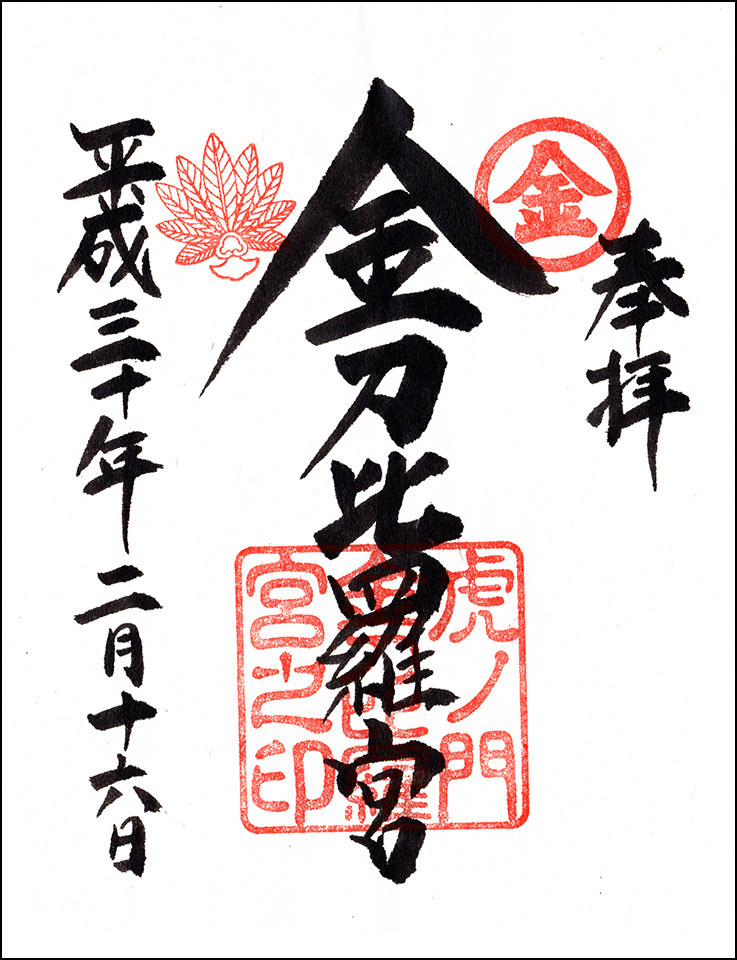 奉拝
金
金刀比羅宮
虎ノ門
金刀比羅
宮之印
平成三十年二月十六日